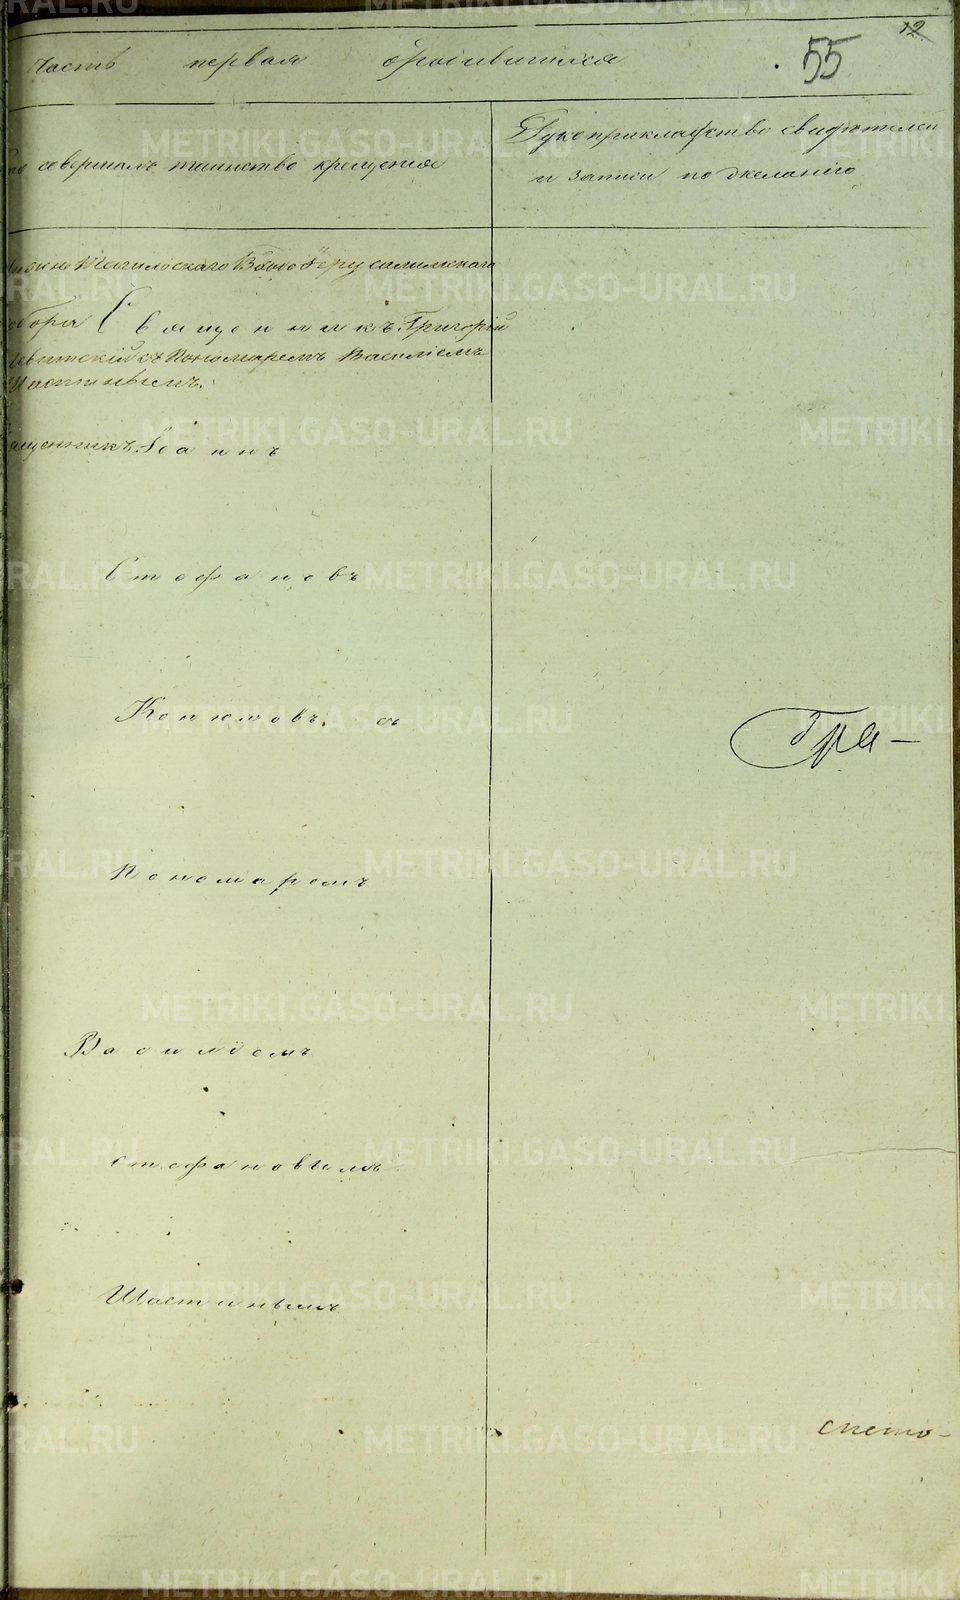 12
Часть первая о родившихся
55
Кто совершалъ таинство крещенія
Рукоприкладство свидѣтелей
и записи по желанію
Тагильскаго Входо Іерусалимскаго
Собора Священникъ Григорій
Левитскій съ Пономаремъ Василіемъ
Шастинымъ.
Священникъ Іоаннъ
Стефановъ
Конюховъ. съ
Гра-
Пономаремъ
Василіемъ
Стефановымъ
Шастинымъ
METRIKI.GASO-URAL.RU